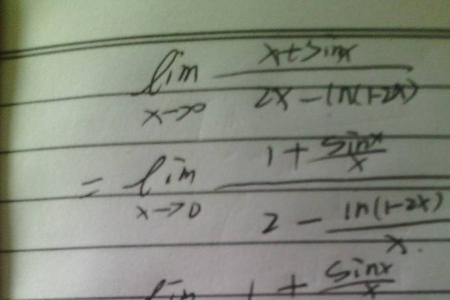 lim x→0 (x+sinx)/(2x-ln(1-2x))
= lim x→0 (1+sinx/x)/(2-ln(1-2x)/x)
lim 1+sinx/x